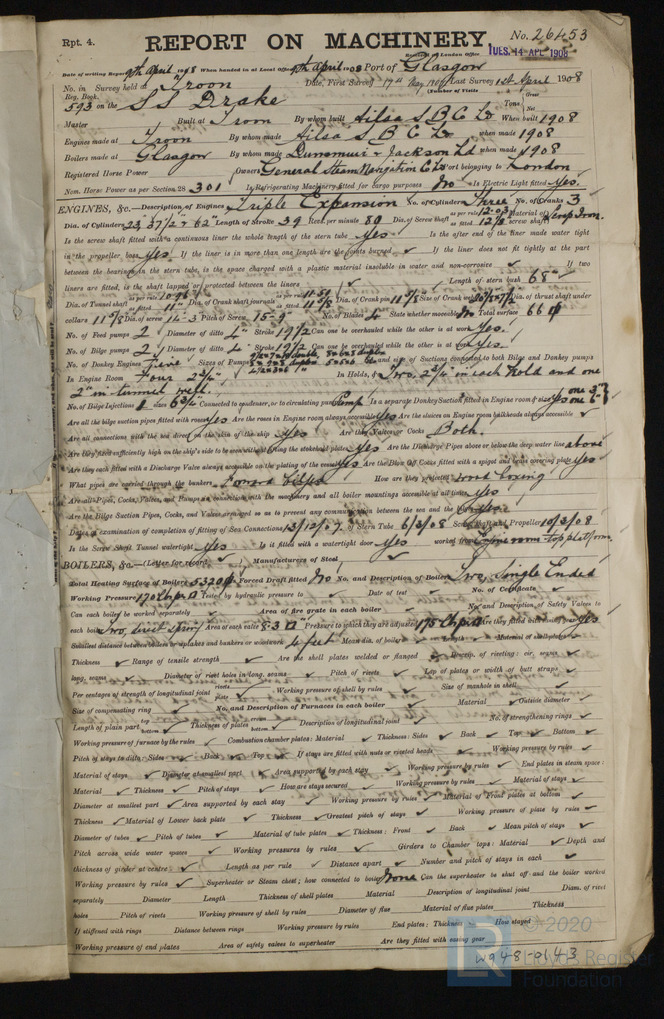 Rpt. 4.
REPORT ON MACHINERY.
No. 26453
Received at London Office
TUES. 14 APL 1908
Date of writing Report 9th April 1908 When handed in at Local Office 9th April 1908 Port of Glasgow
No. in Survey held at Troon Date, First Survey Last Survey 1st April 1908
Reg. Book. (Number of Visits
593 on the S S Drake
Tons Gross Net
Master Built at Troon By whom built Ailsa S B C Ld When built 1908
Engines made at Troon By whom made Ailsa S B C Ld when made 1908
Boilers made at Glasgow By whom made Dunsmuir & Jackson Ld when made 1908
Registered Horse Power Owners General Steam Navigation C Ld Port belonging to London
Nom. Horse Power as per Section 28 301 Is Refrigerating Machinery fitted for cargo purposes No Is Electric Light fitted Yes.
ENGINES, &c.—Description of Engines Triple Expansion No. of Cylinders Three No. of Cranks 3
Dia. of Cylinders 23, 37 1/2 & 62" Length of Stroke 39 Revs. per minute 80 Dia. of Screw shaft as per rule as fitted Material of screw shaft Scrap Iron.
Is the screw shaft fitted with a continuous liner the whole length of the stern tube Yes. Is the after end of the liner made water tight
in the propeller boss Yes If the liner is in more than one length are the joints burned ✓ If the liner does not fit tightly at the part
between the bearings in the stern tube, is the space charged with a plastic material insoluble in water and non-corrosive ✓ If two
liners are fitted, is the shaft lapped or protected between the liners ✓ Length of stern bush 68"
Dia. of Tunnel shaft as per rule as fitted 11" Dia. of Crank shaft journals as per rule as fitted 11 5/8 Dia. of Crank pin 11 7/8" Size of Crank webs Dia. of thrust shaft under
collars 11 5/8 Dia. of screw 14-3 Pitch of Screw 15-9" No. of Blades 4 State whether moveable No Total surface 66
No. of Feed pumps 2 Diameter of ditto 4" Stroke 19 1/2 Can one be overhauled while the other is at work Yes.
No. of Bilge pumps 2 Diameter of ditto 4" Stroke 19 1/2 Can one be overhauled while the other is at work Yes.
No. of Donkey Engines Five Sizes of Pumps No. and size of Suctions connected to both Bilge and Donkey pumps
In Engine Room Four 2 3/4" In Holds, &c. Two, 2 3/4" in each hold and one
2" in tunnel well.
No. of Bilge Injections 1 sizes 6 3/4" Connected to condenser, or to circulating pump Pump Is a separate Donkey Suction fitted in Engine room & size Yes one 3"
Are all the bilge suction pipes fitted with roses Yes Are the roses in Engine room always accessible Yes Are the sluices on Engine room bulkheads always accessible ✓
Are all connections with the sea direct on the skin of the ship Yes Are they Valves or Cocks Both.
Are they fixed sufficiently high on the ship's side to be seen without lifting the stokehold plates Yes Are the Discharge Pipes above or below the deep water line above
Are they each fitted with a Discharge Valve always accessible on the plating of the vessel Yes Are the Blow Off Cocks fitted with a spigot and brass covering plate Yes
What pipes are carried through the bunkers Forward bilges How are they protected wood casing
Are all Pipes, Cocks, Valves, and Pumps in connection with the machinery and all boiler mountings accessible at all times Yes
Are the Bilge Suction Pipes, Cocks, and Valves arranged so as to prevent any communication between the sea and the bilges Yes
Dates of examination of completion of fitting of Sea Connections 13/12/07 of Stern Tube 6/3/08 Screw shaft and Propeller 10/3/08
Is the Screw Shaft Tunnel watertight Yes Is it fitted with a watertight door Yes worked from Engineroom top platform
BOILERS, &c.—(Letter for record ) Manufacturers of Steel ✓
Total Heating Surface of Boilers 5320 Forced Draft fitted No No. and Description of Boilers Two, Single Ended
Working Pressure 170 Tested by hydraulic pressure to ✓ Date of test ✓ No. of Certificate ✓
Can each boiler be worked separately ✓ Area of fire grate in each boiler ✓ No. and Description of Safety Valves to
each boiler Two, direct spring Area of each valve 8.3 Pressure to which they are adjusted 175 Are they fitted with easing gear Yes
Smallest distance between boilers or uptakes and bunkers or woodwork 6 feet Mean dia. of boilers ✓ Length ✓ Material of shell plates ✓
Thickness ✓ Range of tensile strength ✓ Are the shell plates welded or flanged ✓ Descrip. of riveting: cir. seams ✓
long. seams ✓ Diameter of rivet holes in long. seams ✓ Pitch of rivets ✓ Lap of plates or width of butt straps
Per centages of strength of longitudinal joint rivets plate Working pressure of shell by rules ✓ Size of manhole in shell ✓
Size of compensating ring ✓ No. and Description of Furnaces in each boiler ✓ Material ✓ Outside diameter ✓
Length of plain part top bottom Thickness of plates crown bottom Description of longitudinal joint No. of strengthening rings ✓
Working pressure of furnace by the rules ✓ Combustion chamber plates: Material ✓ Thickness: Sides ✓ Back ✓ Top ✓ Bottom ✓
Pitch of stays to ditto: Sides ✓ Back ✓ Top ✓ If stays are fitted with nuts or riveted heads ✓ Working pressure by rules ✓
Material of stays ✓ Diameter at smallest part ✓ Area supported by each stay ✓ Working pressure by rules ✓ End plates in steam space:
Material ✓ Thickness ✓ Pitch of stays ✓ How are stays secured ✓ Working pressure by rules ✓ Material of stays ✓
Diameter at smallest part ✓ Area supported by each stay ✓ Working pressure by rules ✓ Material of Front plates at bottom ✓
Thickness ✓ Material of Lower back plate ✓ Thickness ✓ Greatest pitch of stays ✓ Working pressure of plate by rules ✓
Diameter of tubes ✓ Pitch of tubes ✓ Material of tube plates ✓ Thickness: Front ✓ Back ✓ Mean pitch of stays ✓
Pitch across wide water spaces ✓ Working pressures by rules ✓ Girders to Chamber tops: Material ✓ Depth and
thickness of girder at centre ✓ Length as per rule ✓ Distance apart ✓ Number and pitch of stays in each ✓
Working pressure by rules ✓ Superheater or Steam chest; how connected to boiler None Can the superheater be shut off and the boiler worked
separately Diameter Length Thickness of shell plates Material Description of longitudinal joint Diam. of rivet
holes Pitch of rivets Working pressure of shell by rules Diameter of flue Material of flue plates Thickness
If stiffened with rings Distance between rings Working pressure by rules End plates: Thickness How stayed
Working pressure of end plates Area of safety valves to superheater Are they fitted with easing gear
© 2020
Lloyd's Register
Foundation
W948-0143